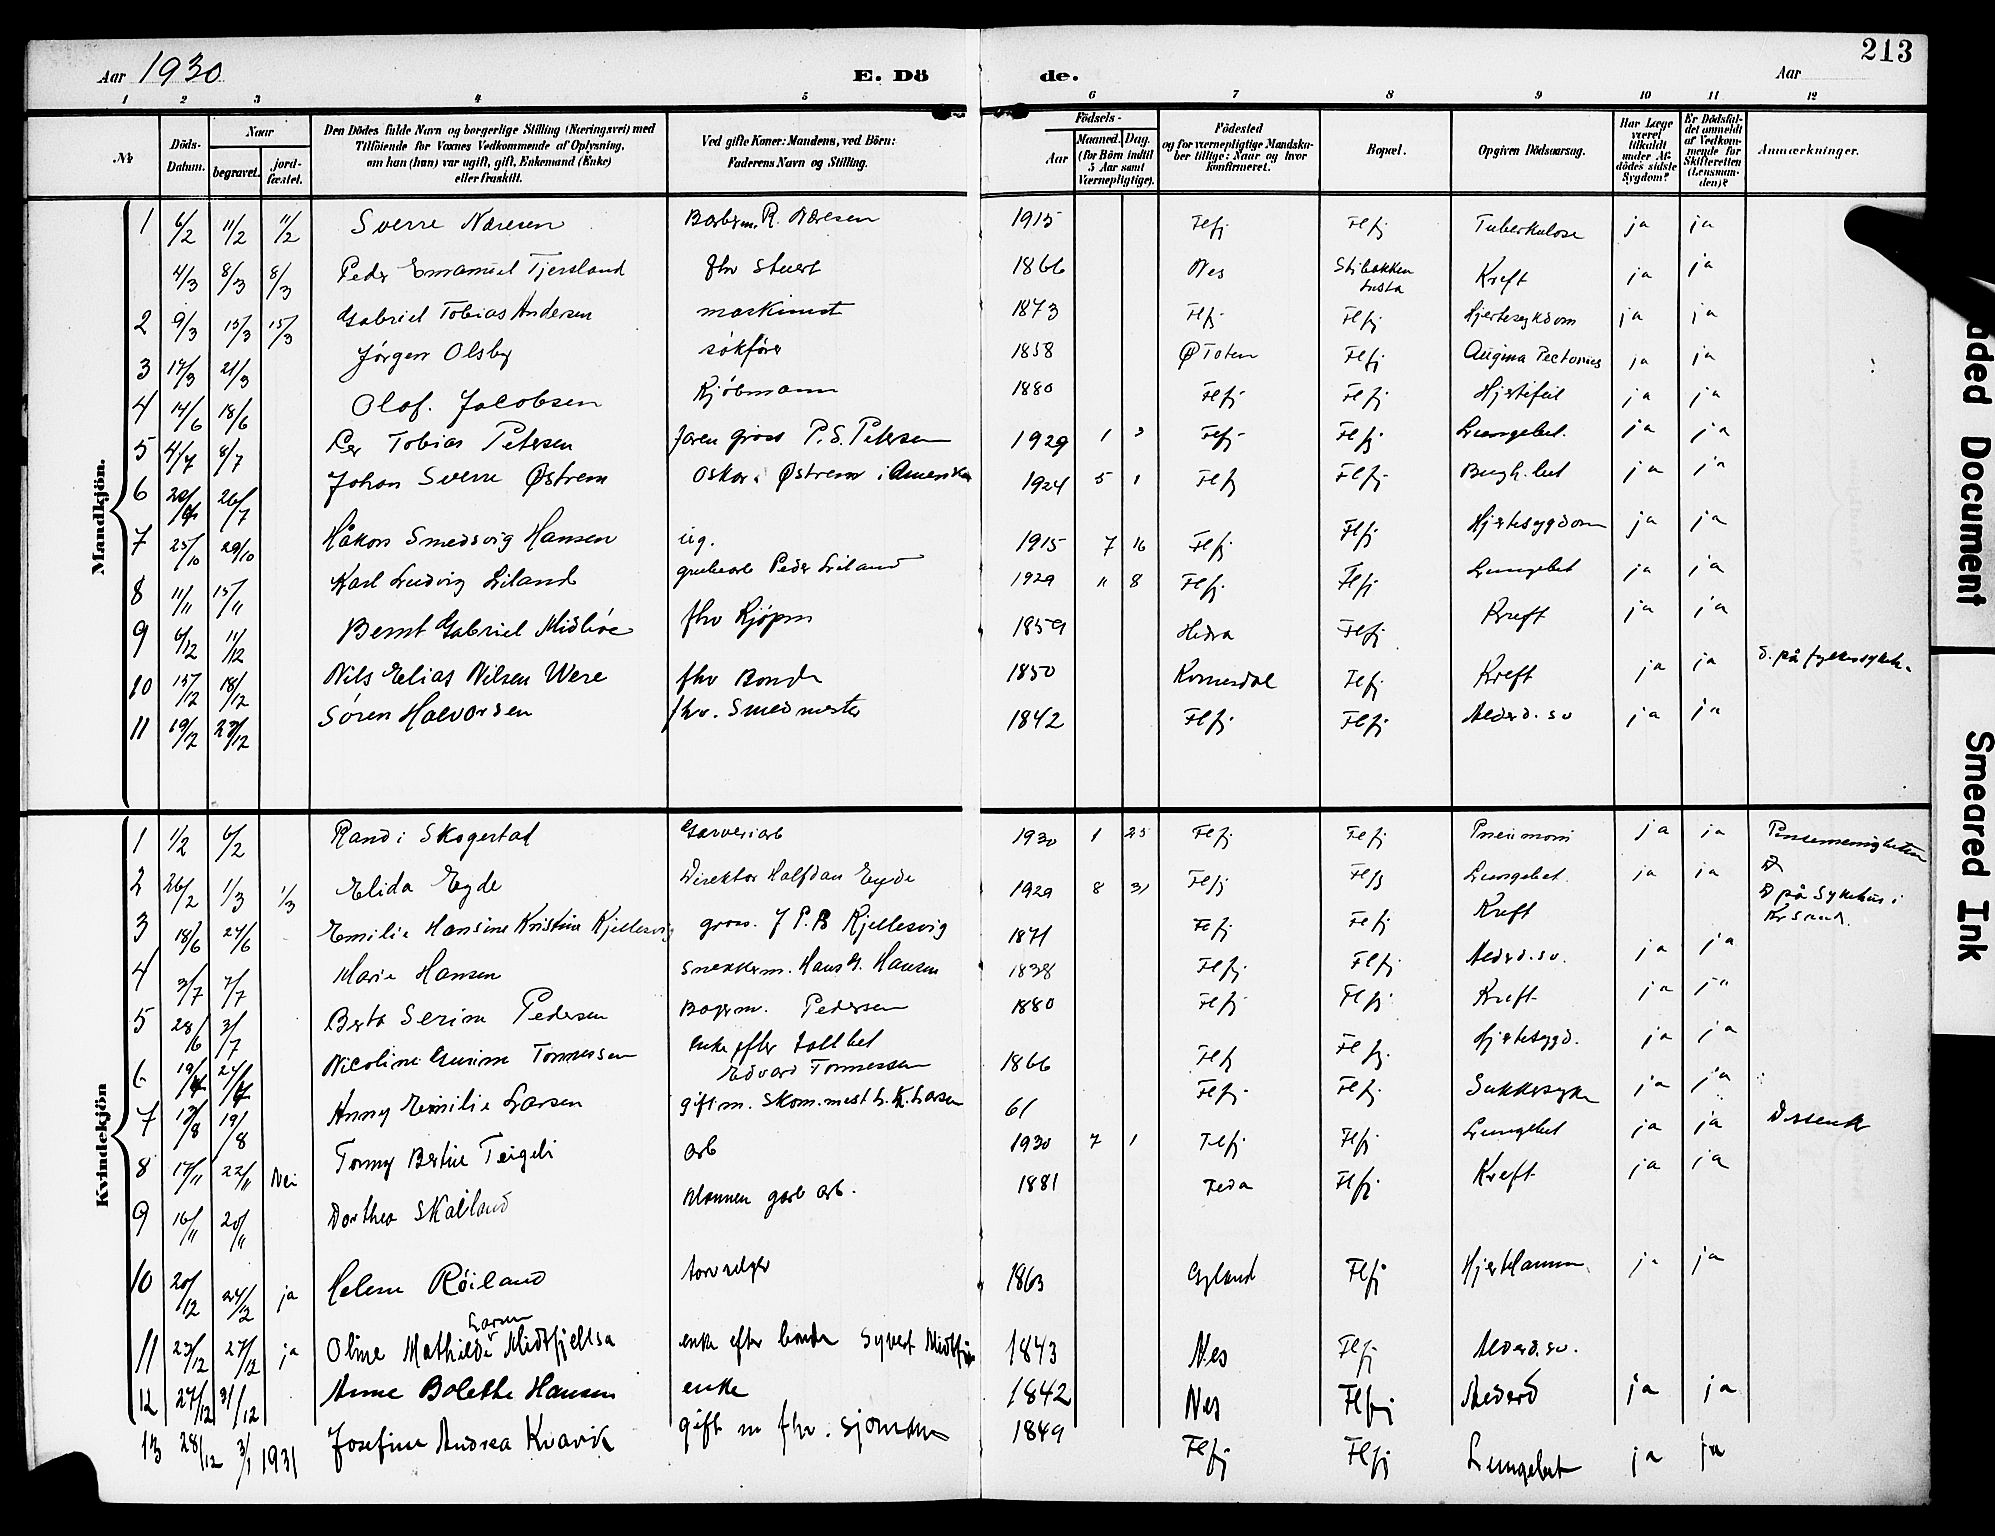 Aar 1930
E. Dö
de.
Aar
213
1 2 3 4 5 6 7 8 9 10 11 12
Nr
Döds-Datum.
Naar
begravet.
jord-fæstet.
Den Dödes fulde Navn og borgerlige Stilling (Næringsvei) med
Tilföiende for Voxnes Vedkommende af Oplysning,
om han (hun) var ugift, gift, Enkemand (Enke)
eller fraskilt.
Ved gifte Koner: Mandens, ved Börn:
Faderens Navn og Stilling.
Födsels-
Aar
Maaned. Dag.
(for Börn indtil
5 Aar samt
Værnepligtige).
Födested
og for værnepligtige Mandska-
ber tillige: Naar og hvor
konfirmeret.
Bopæl.
Opgiven Dödsaarsag.
Har Læge
været
tilkaldt
under Af-
dödes sidste
Sygdom?
Er Dödsfal-
det anmeldt
af Vedkom-
mende for
Skifteretten
(Lensman-
den)?
Anmærkninger.
Mandkjön.
1 6/2 11/2 11/2 Sverre Naresen R. Naresen 1915 Flfj Flfj Tuberkulose ja ja
4/3 8/3 8/3 Peder Emanuel Tjersland fhv Stuert 1866 Nes Stibakken Lista Kreft ja ja
2 9/3 15/3 15/3 Gabriel Tobias Andersen maskinist 1873 Flfj Flfj Hjertesykdom ja ja
3 17/3 21/3 Jörgen Olsby sakförer 1858 Ø Toten Flfj Angina Pectoris ja ja
4 14/6 18/6 Olaf. Jacobsen Kjöbmann 1880 Flfj Flfj Hjertefeil ja ja
5 4/7 8/7 Per Tobias Petersen faren gross P. S. Petersen 1929 1 3 Flfj Flfj Lungebet. ja ja
6 26/7 Johan Sverre Østrem Oskar Østrem i Amerika 1924 5 1 Flfj Flfj ja ja
7 25/10 29/10 Håkon Smedsvig Hansen ug. 1915 7 16 Flfj Flfj Hjertesygdom ja ja
8 11/11 15/11 Karl Ludvig Liland Peder Liland 1929 11 8 Flfj Flfj Lungebet ja ja
9 6/12 11/12 Bernt Gabriel Midbøe fhv Kjøpm 1859 Hidra Flfj Kreft ja ja
10 15/12 18/12 Nils Elias Nilsen Were fhv Bonde 1850 Flfj Kreft ja ja d. på fylkessykeh.
11 19/12 23/12 Søren Halvorsen fhv. Smedmester 1842 Flfj Flfj Alderd. sv ja ja
Kvindekjön
1 1/2 6/2 Randi Skogestad Garveriarb 1930 1 25 Flfj Flfj Pneumoni ja ja
2 26/2 1/3 1/3 Elida Eyde Direktor Halfdan Eyde 1929 8 31 Flfj Flfj Lungebet. ja ja
3 18/6 24/6 Emilie Hansine Kristine Kjellesvig gross. J P. B Kjellesvig 1871 Flfj Flfj Kreft D på Sykehus i Kr Sand.
4 3/7 7/7 Marie Hansen Snekkerm. Hans G. Hansen 1838 Flfj Flfj Alderd. sv. ja ja
5 28/6 3/7 Berta Serine Pedersen Bagerm. Pedersen 1880 Flfj Flfj Kreft ja ja
6 19/7 24/7 Nicoline Gurine Tønnessen enke efter tollbet Edvard Tonnessen 1866 Flfj Flfj. Hjertesygd. ja ja
7 13/8 19/8 Anny Emilie Larsen gift m. Skom. mest L. K. Larsen 61 Flfj Flfj Sukkersyke ja ja
8 17/11 22/11 Nei Tonny Bertine Teigeli arb 1930 7 1 Flfj Flfj Lungebet ja ja Dissenter
9 16/11 20/11 Dorthea Skailand Mannen garb arb. 1881 Feda Flfj Kreft ja ja
10 20/12 24/12 ja Helene Röiland torvselger 1863 Gyland Flfj ja ja
Larsen
11 23/12 27/12 ja Oline Mathilde Midtfjellsa enke efter bonde Syvert 1843 Nes Flfj Alderd. sv.
12 27/12 31/12 Anne Bolethe Hansen enke 1842 Nes Flfj Alderd ja ja
13 28/12 3/1 1931 Josefine Andrea Kvavik gift m fhv. sjømann 1849 Flfj Flfj Lungebet ja ja
Document
Smeared Ink